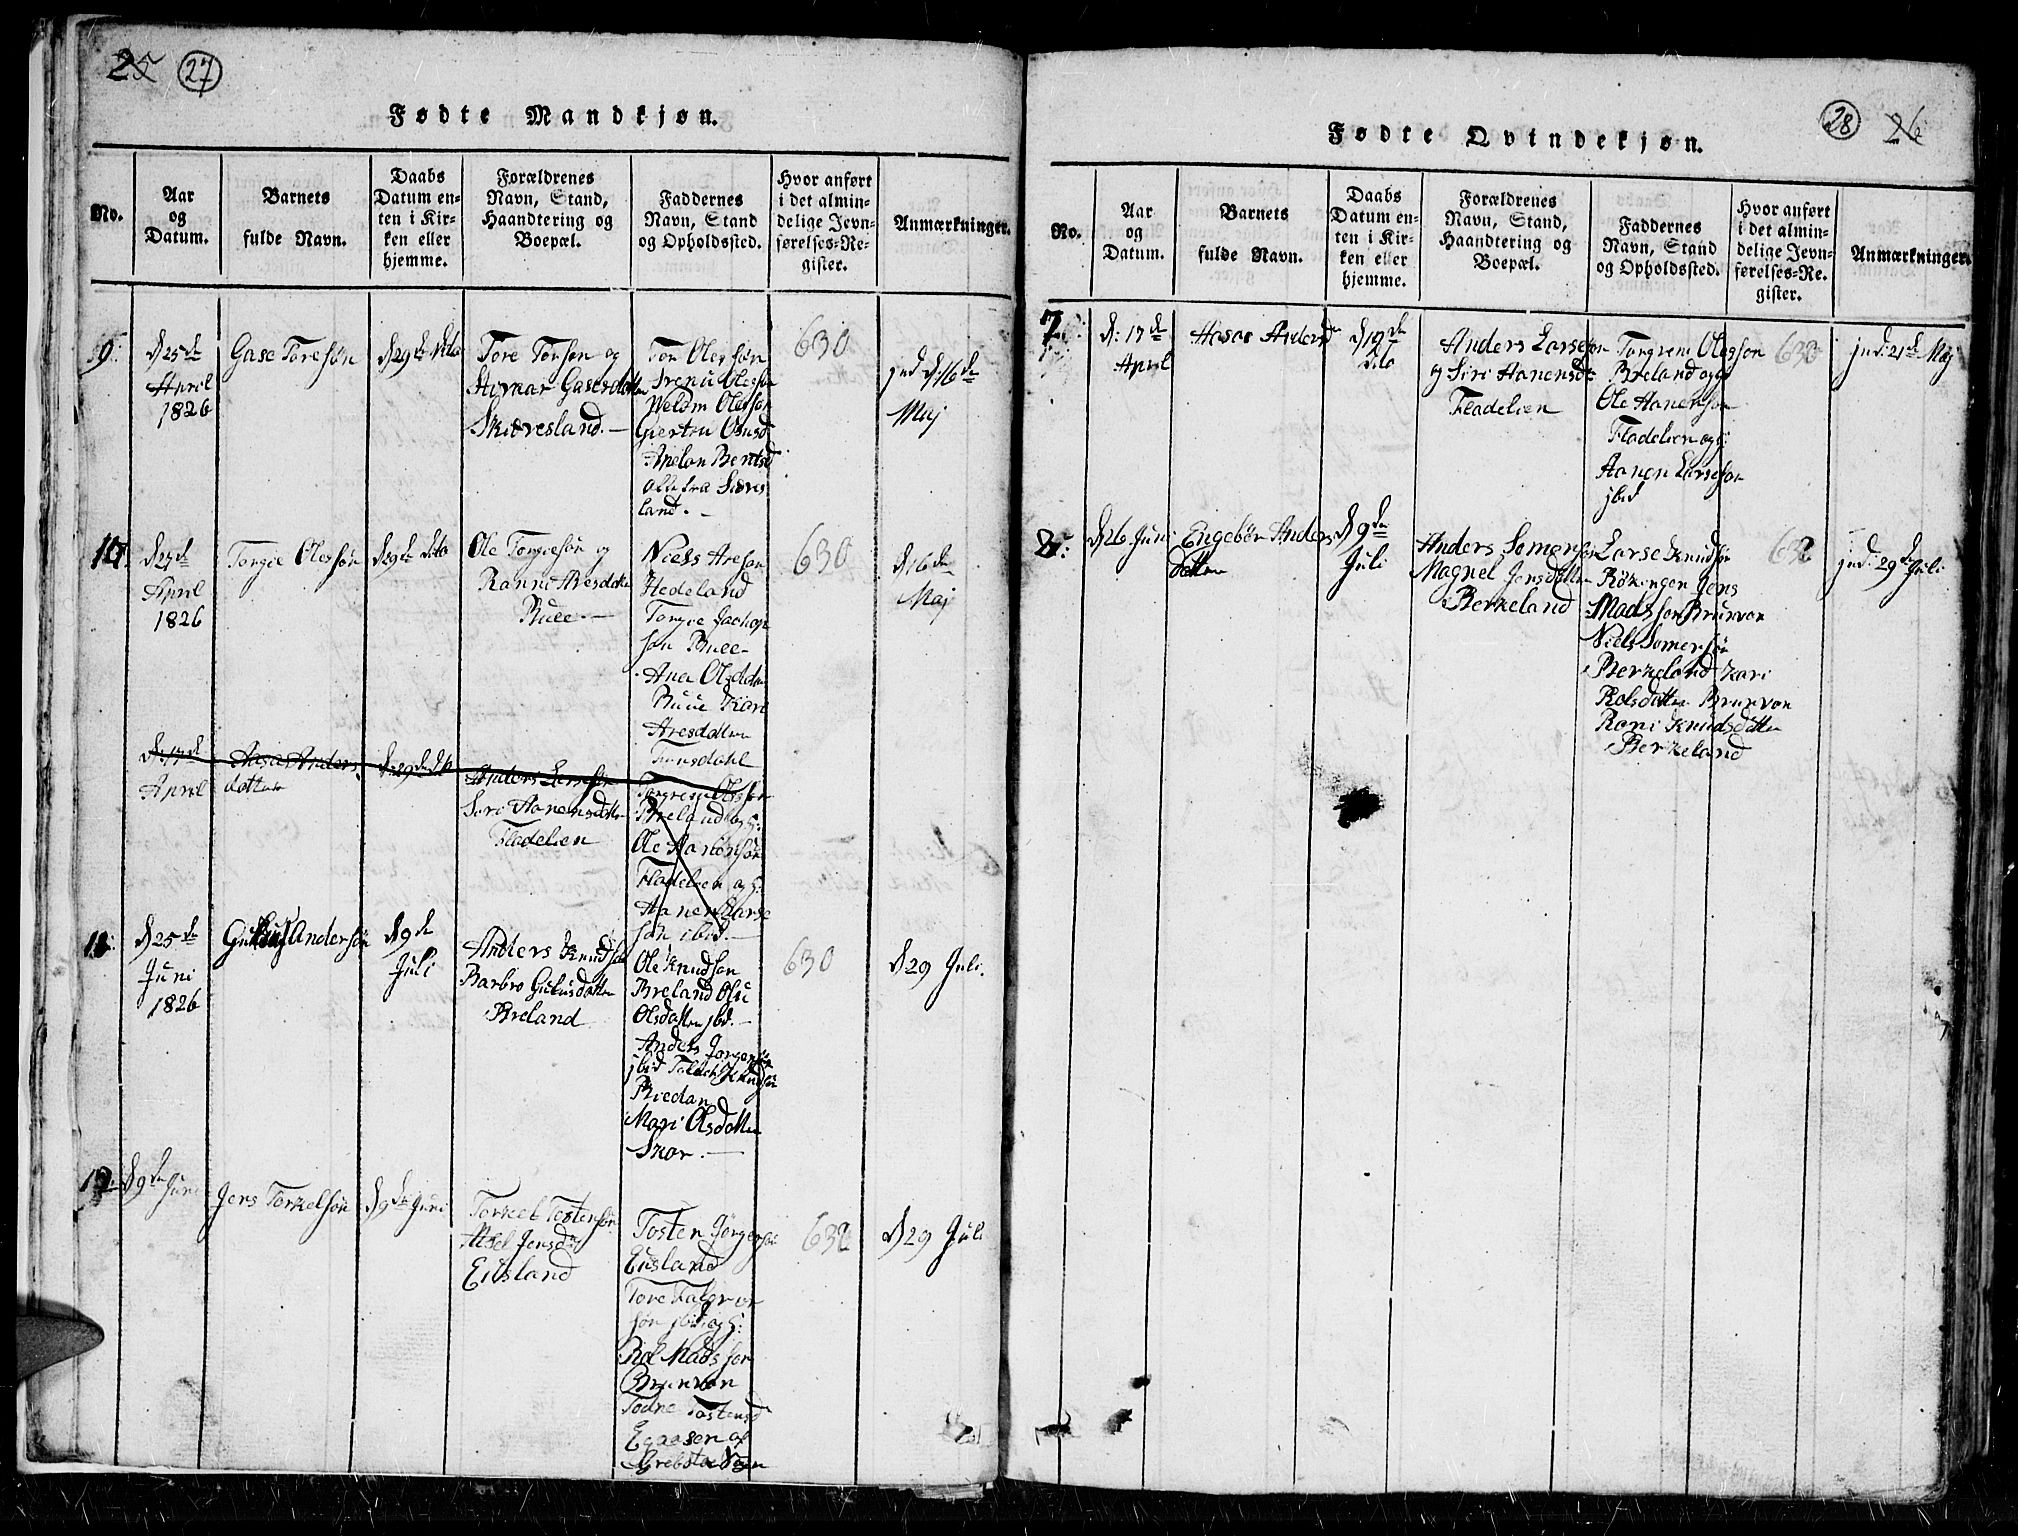 25 27
Fødte Mandkjøn.
No.
Aar
og
Datum.
Barnets
fulde Navn.
Daabs
Datum en-
ten i Kir-
ken eller
hjemme.
Forældrenes
Navn, Stand,
Haandtering og
Boepæl.
Faddernes
Navn, Stand
og Opholdssted.
Hvor anført
i det almin-
delige Jevn-
førelses-Re-
gister.
Anmærkninger.
9:
d 25de
April
1826
Gase Toresøn
d 29de dito
Tore Torsøn og
Gasesdatter
Skibresland.
Tor Olessøn
Olessøn
Olessøn
Gierten Olsd
Anelan Bentsd
alle fra
land.
630
ind d: 16de
Maj
10.
d 27de
April
1826
Torgie Olessøn
d 29de dito
Ole Torgiesøn og
Ranni Aresdatter
Buee
Niels Aresøn
Hedeland
Torgie Jachop
søn Buee
Ane Olsdatter
Buue Kari
Aresdatter
630
d 16de
Maj
d: 17de
April
Aasa Anders
datter
d 29de dto
Anders Larsøn
Siri Aanensdatter
Fladelien
Torgrem Olessøn
Breland og
Ole
Fladelien og
Aanen Larse
søn ibid
11:
d 25de
Juni
1826
Andersøn
d 9de
Juli
Anders Knudsøn
Barbro Gulusdatter
Breland
Ole Knudsøn
Breland
Olsdatter jbd.
Anders Jorgensøn
jbid Knudsøn
Bredan
Mari Olsdatter
Skor.
630
d 29 Juli.
12
d 9de Juni
Jens Torkelsøn
d 9de Juni
Torkel Tostensøn
Jensd
Eitsland
Tosten Jørgensøn
Eitsland
Tore
søn jbid og
Rol Madssøn
Brunvon
Todne Tostensd
630
d 29 Juli
28 26
Fødte Qvindekjøn.
No.
Aar
og
Datum.
Barnets
fulde Navn.
Daabs
Datum en-
ten i Kir-
ken eller
hjemme.
Forældrenes
Navn, Stand,
Haandtering og
Boepæl.
Faddernes
Navn, Stand
og Opholdssted.
Hvor anført
i det almin-
delige Jevn-
førelses-Re-
gister.
Anmærkninger.
7
d: 17de
April
Aasae Andersd
d 19de
dito
Anders Larsesøn
og Siri Aanensd
Fladelien
Torgrem Olessøn
Breland og
Ole Aanensøn
Fladelien og
Aanen Larsesøn
jbid
630
jnd: 21de Maj
8:
d 26 Juni
Engebør Anders
datter
d 9de
Juli
Anders Somersøn
Magnel Jensdatter
Berkeland
Larse Knudsøn
Røkengen Jens
Madssøn Brunvon
Niels Somersøn
Berkeland Kari
Rolsdatter Brunvon
Roni Knudsdatter
Berkeland
jnd: 29de Juli